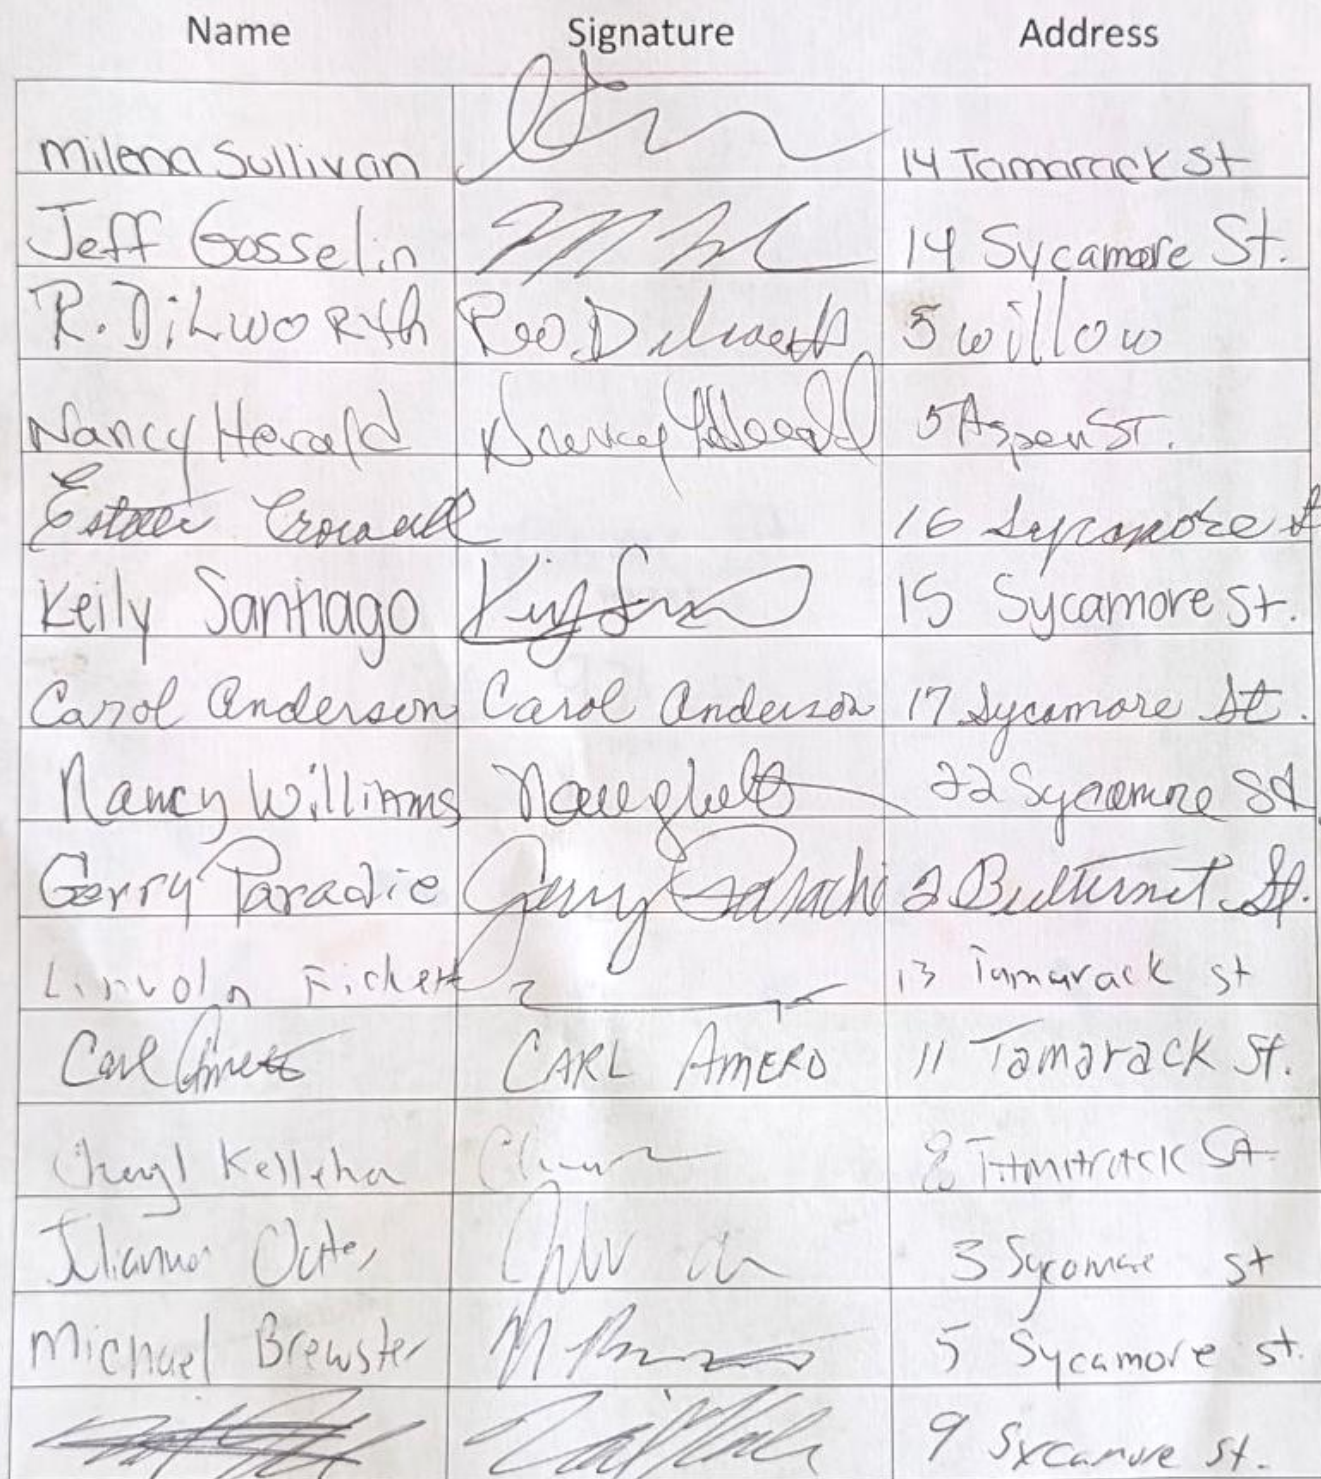 Name Signature Address
Milena Sullivan 14 Tamarack St
Jeff Gosselin 14 Sycamore St.
R. DiLwoRth 5 willow
Nancy Herald Nancy Herald 5 Aspen ST.
16 Sycamore St
Keily Santiago 15 Sycamore St.
Carol Anderson Carol Anderson 17 Sycamore St.
Nancy Williams 22 Sycamore St
Gerry Paradie Gerry Paradie 2 Butternut St.
Lincoln Fickett 13 Tamarack st
Carl Amero CARL AMERO 11 Tamarack St.
Cheryl Kelleher 8 Tamarack St
3 Sycomore st
Michael Brewster 5 Sycamore st.
9 Sycamore St.